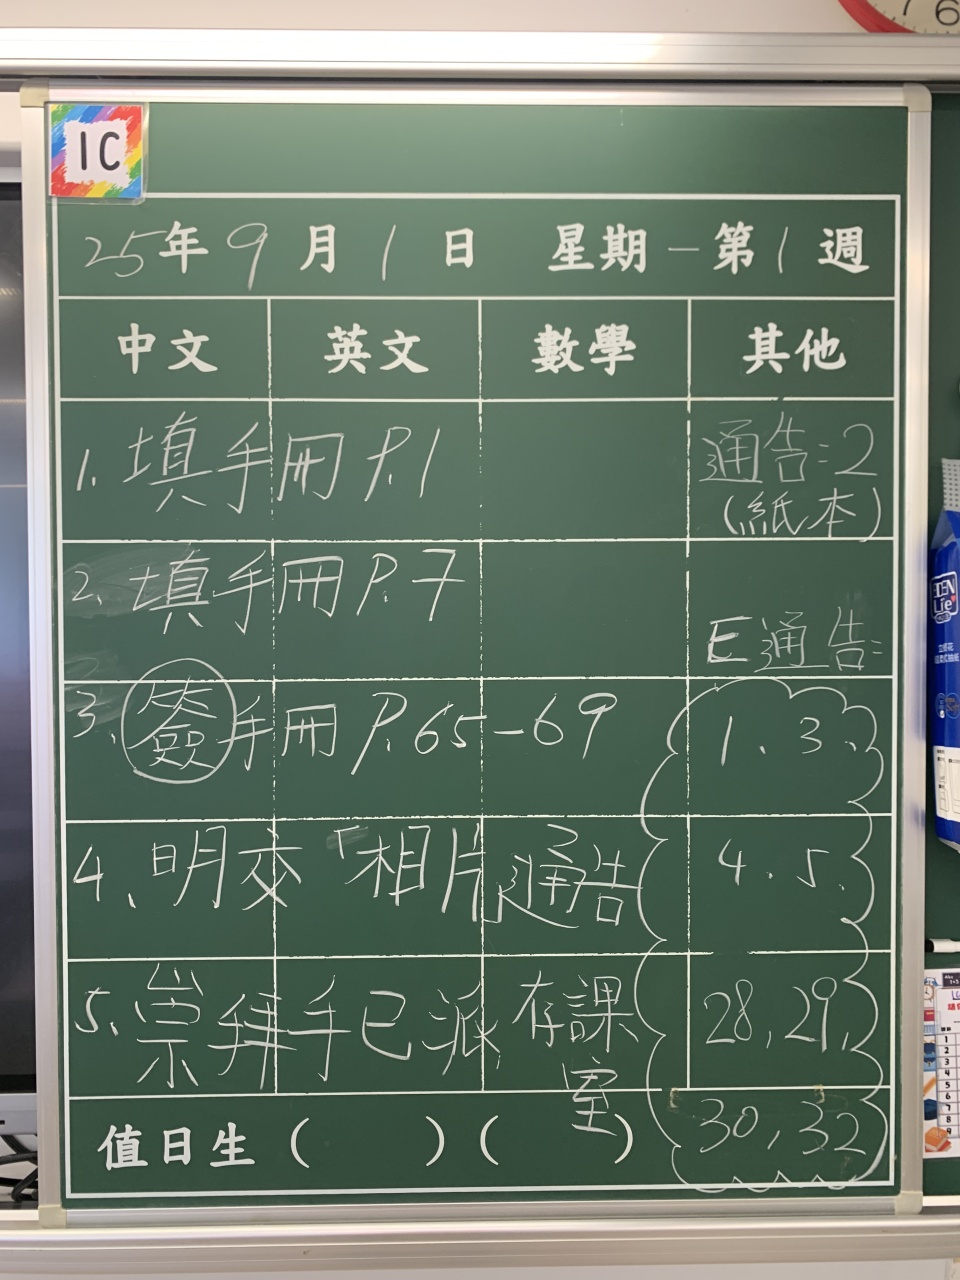 6
1C
25年9月1日 星期一第1週
中文 英文 數學 其他
1. 填手冊 P.1
通告:2
(紙本)
2、填手冊 P.7
E通告:
3、簽手冊 P.65-69
1、3、
4、明交「相片通告
4、5、
5、崇拜手已派,存課室
28,29,
30,32
值日生( )( )